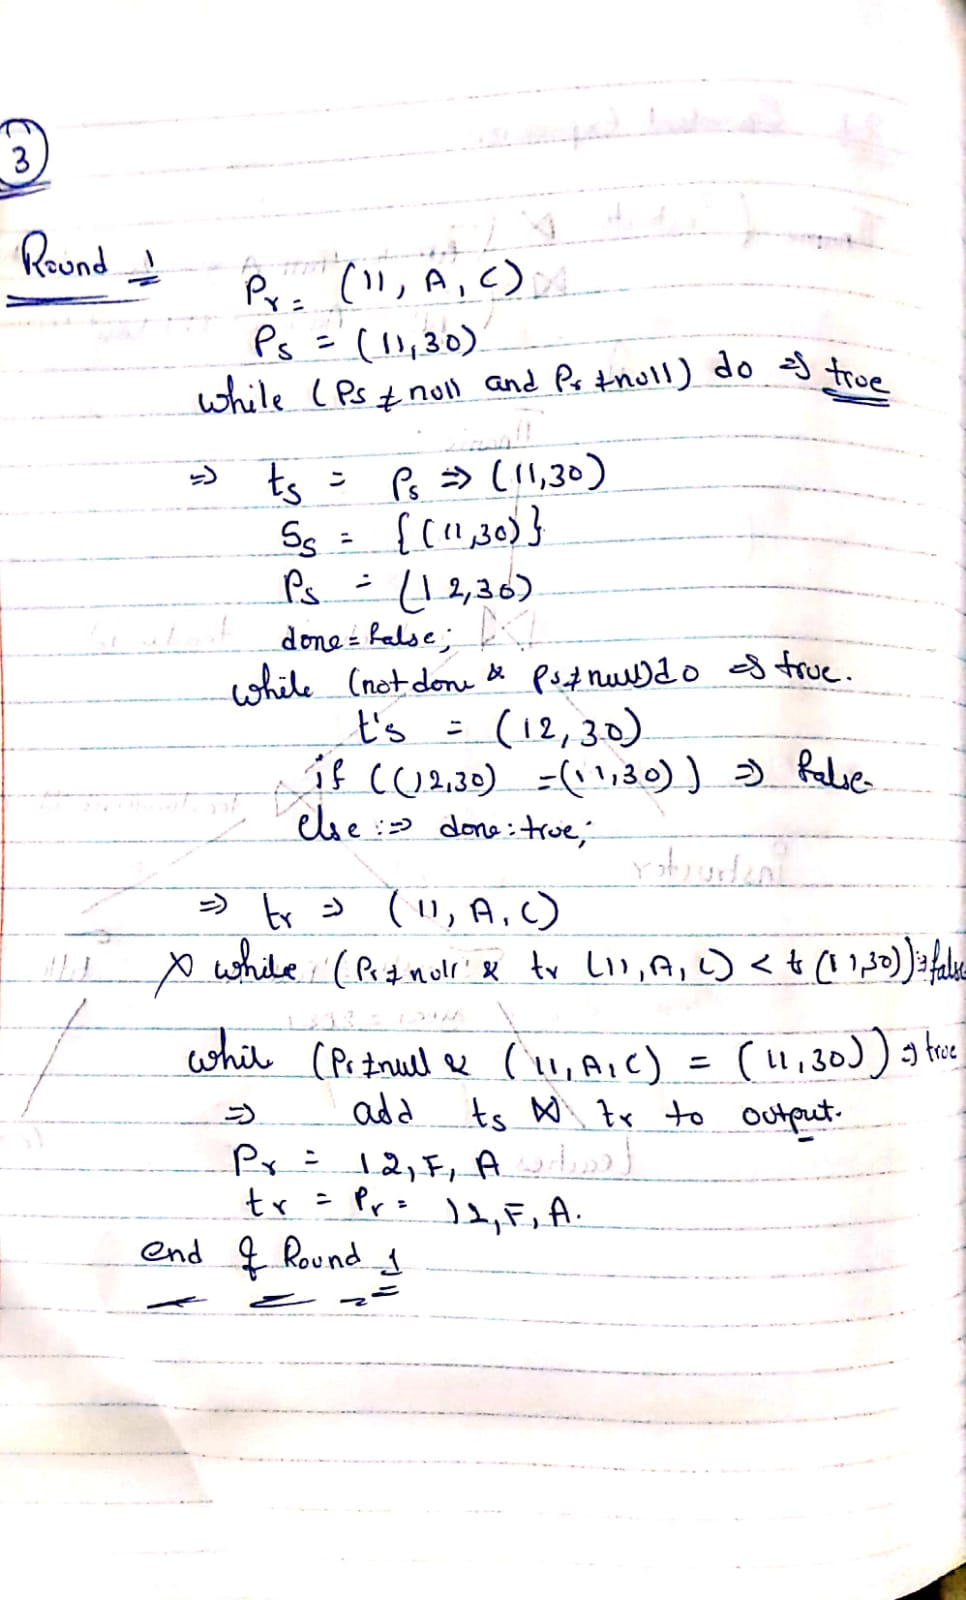 3
Round 1
Pr = (11, A, C)
Ps = (11,30)
while (Ps ≠ null and Pr ≠ null) do => true
=> ts = Ps => (11,30)
Ss = {(11,30)}
Ps = (12,30)
done = false;
while (not done & Ps ≠ null) do => true.
t's = (12,30)
if ((12,30) = (11,30)) => false
else :=> done : true;
=> tr => (11, A, C)
while (Pr ≠ null & tr (11, A, C) < t (11,30)) => false
whil (Pr ≠ null & (11, A, C) = (11,30)) => true
=> add ts ⋈ tr to output.
Pr = 12, F, A
tr = Pr = 12, F, A.
end of Round 1